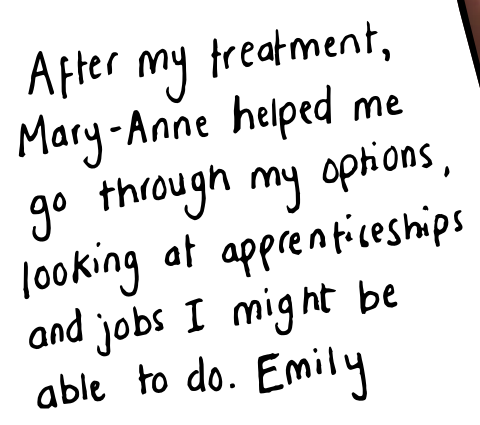 After my treatment,
Mary-Anne helped me
go through my options,
looking at apprenticeships
and jobs I might be
able to do. Emily